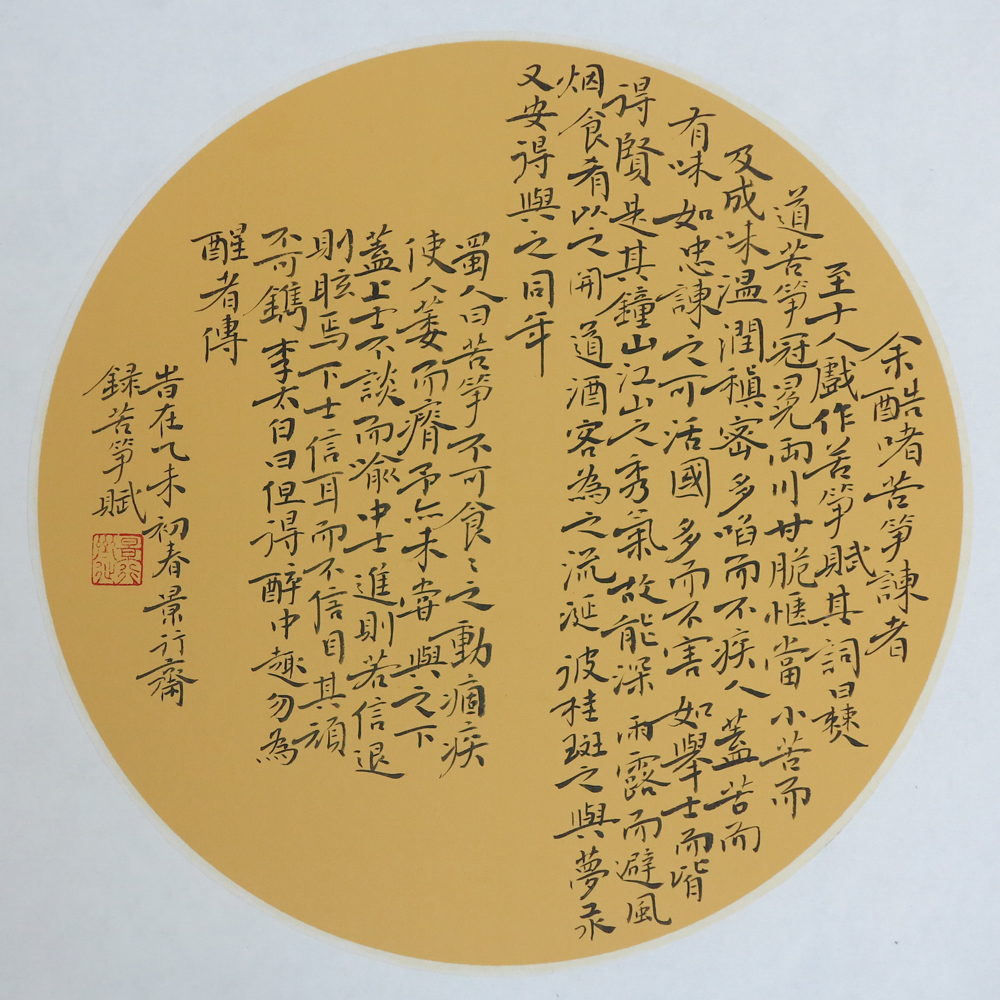 余酷嗜苦笋諫者
至十人戲作苦笋賦其詞曰僰
道苦笋冠冕兩川甘脆愜當小苦而
及成味温潤稹密多啗而不疾人蓋苦而
有味如忠諫之可活國多而不害如舉士而皆
得賢是其鐘山江山之秀氣故能深雨露而避風
烟食肴以之開道酒客為之流涎彼桂斑之與夢永
又安得與之同年
蜀人曰苦笋不可食〻之動痼疾
使人萎而瘠予亦未嘗與之下
蓋上士不談而喻中士進則若信退
則眩焉下士信耳而不信目其頑
不可鐫李太白曰但得醉中趣勿為
醒者傳
昔在乙未初春景行齋
録苦笋賦